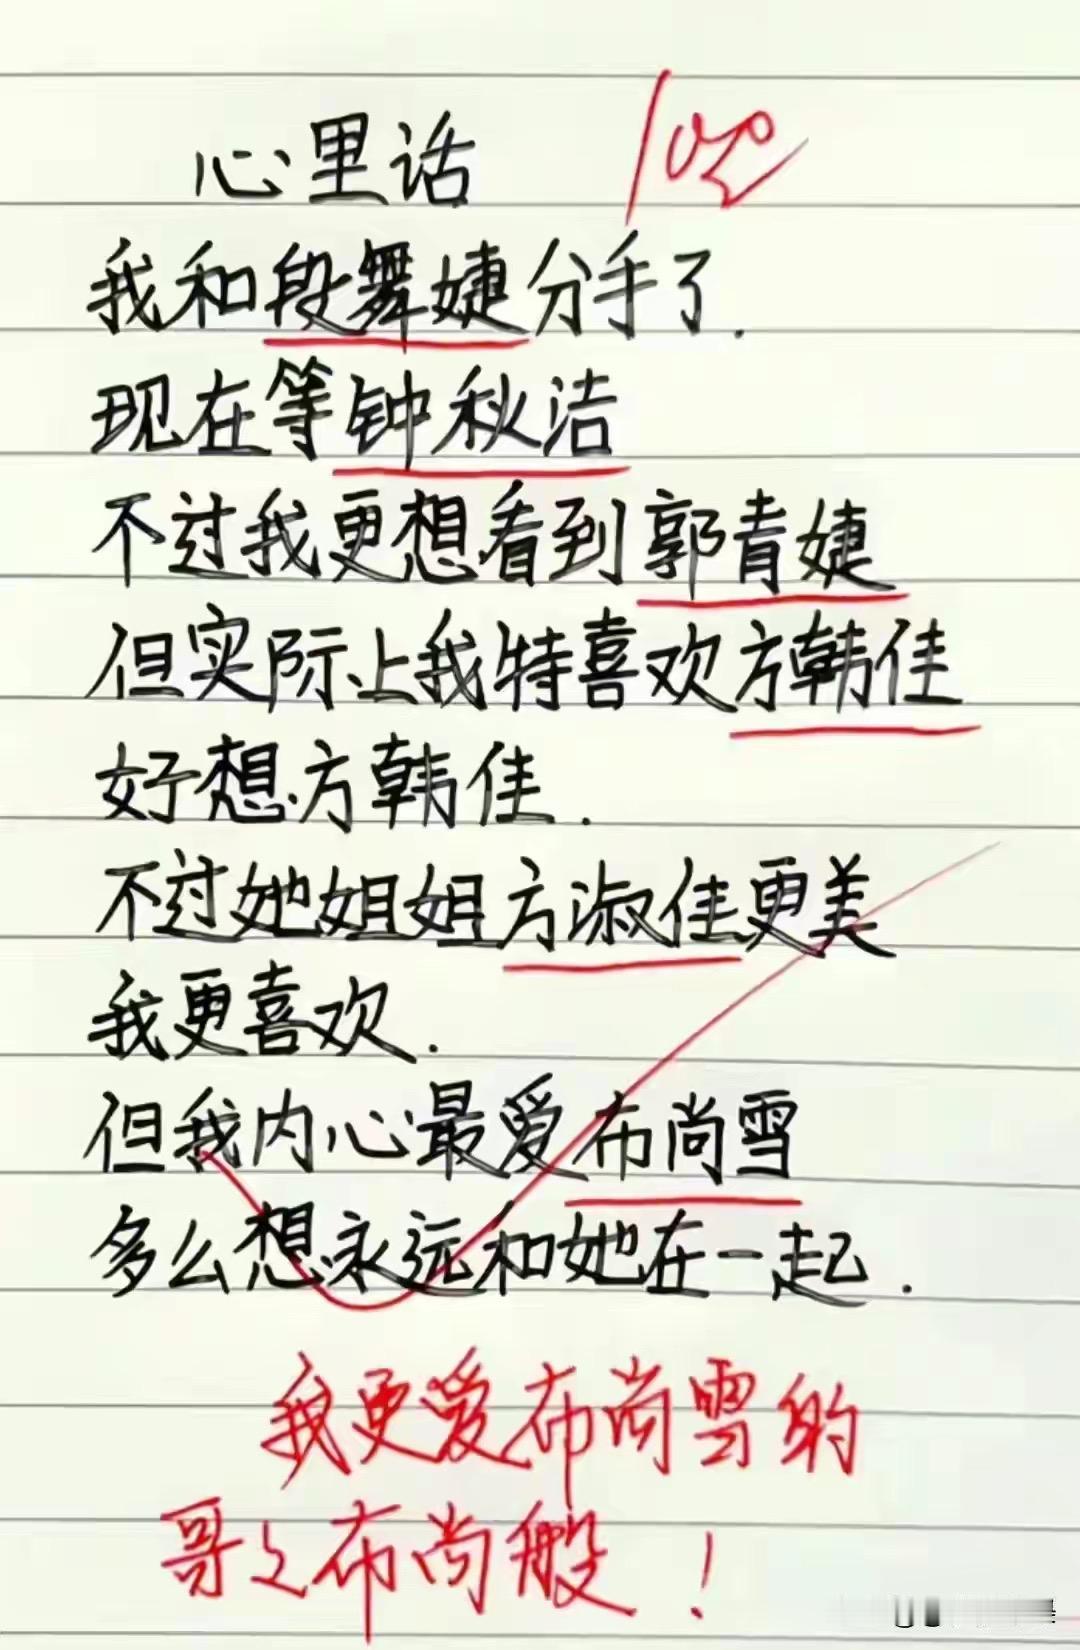 心里话 100
我和段舞婕分手了.
现在等钟秋洁
不过我更想看到郭青婕
但实际上我特喜欢方韩佳
好想方韩佳.
不过她姐姐方淑佳更美
我更喜欢.
但我内心最爱布尚雪
多么想永远和她在一起.
我更爱布尚雪的
哥哥布尚般!